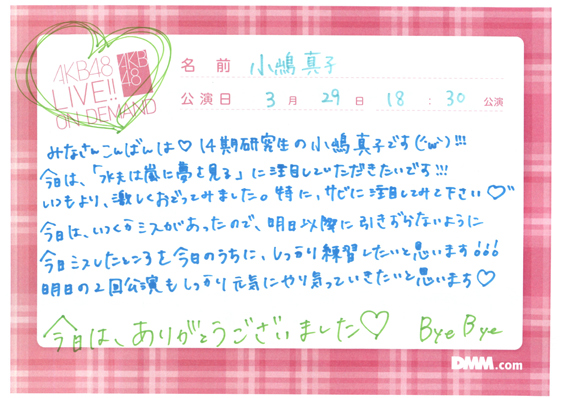 AKB48
LIVE!!
ON DEMAND
AKB
48
名 前 小嶋真子
公演日 3月 29日 18:30 公演
みなさんこんばんは♡ 14期研究生の小嶋真子です(´ω`)!!!
今日は、「水夫は嵐に夢を見る」に注目していただきたいです!!!
いつもより、激しくおどってみました。特に、サビに注目してみて下さい♡
今日は、いくつかミスがあったので、明日以降に引きずらないように
今日ミスしたところを今日のうちに、しっかり練習したいと思います!!!
明日の2回公演もしっかり元気にやり気っていきたいと思います♡
今日は、ありがとうございました♡ Bye Bye
DMM.com